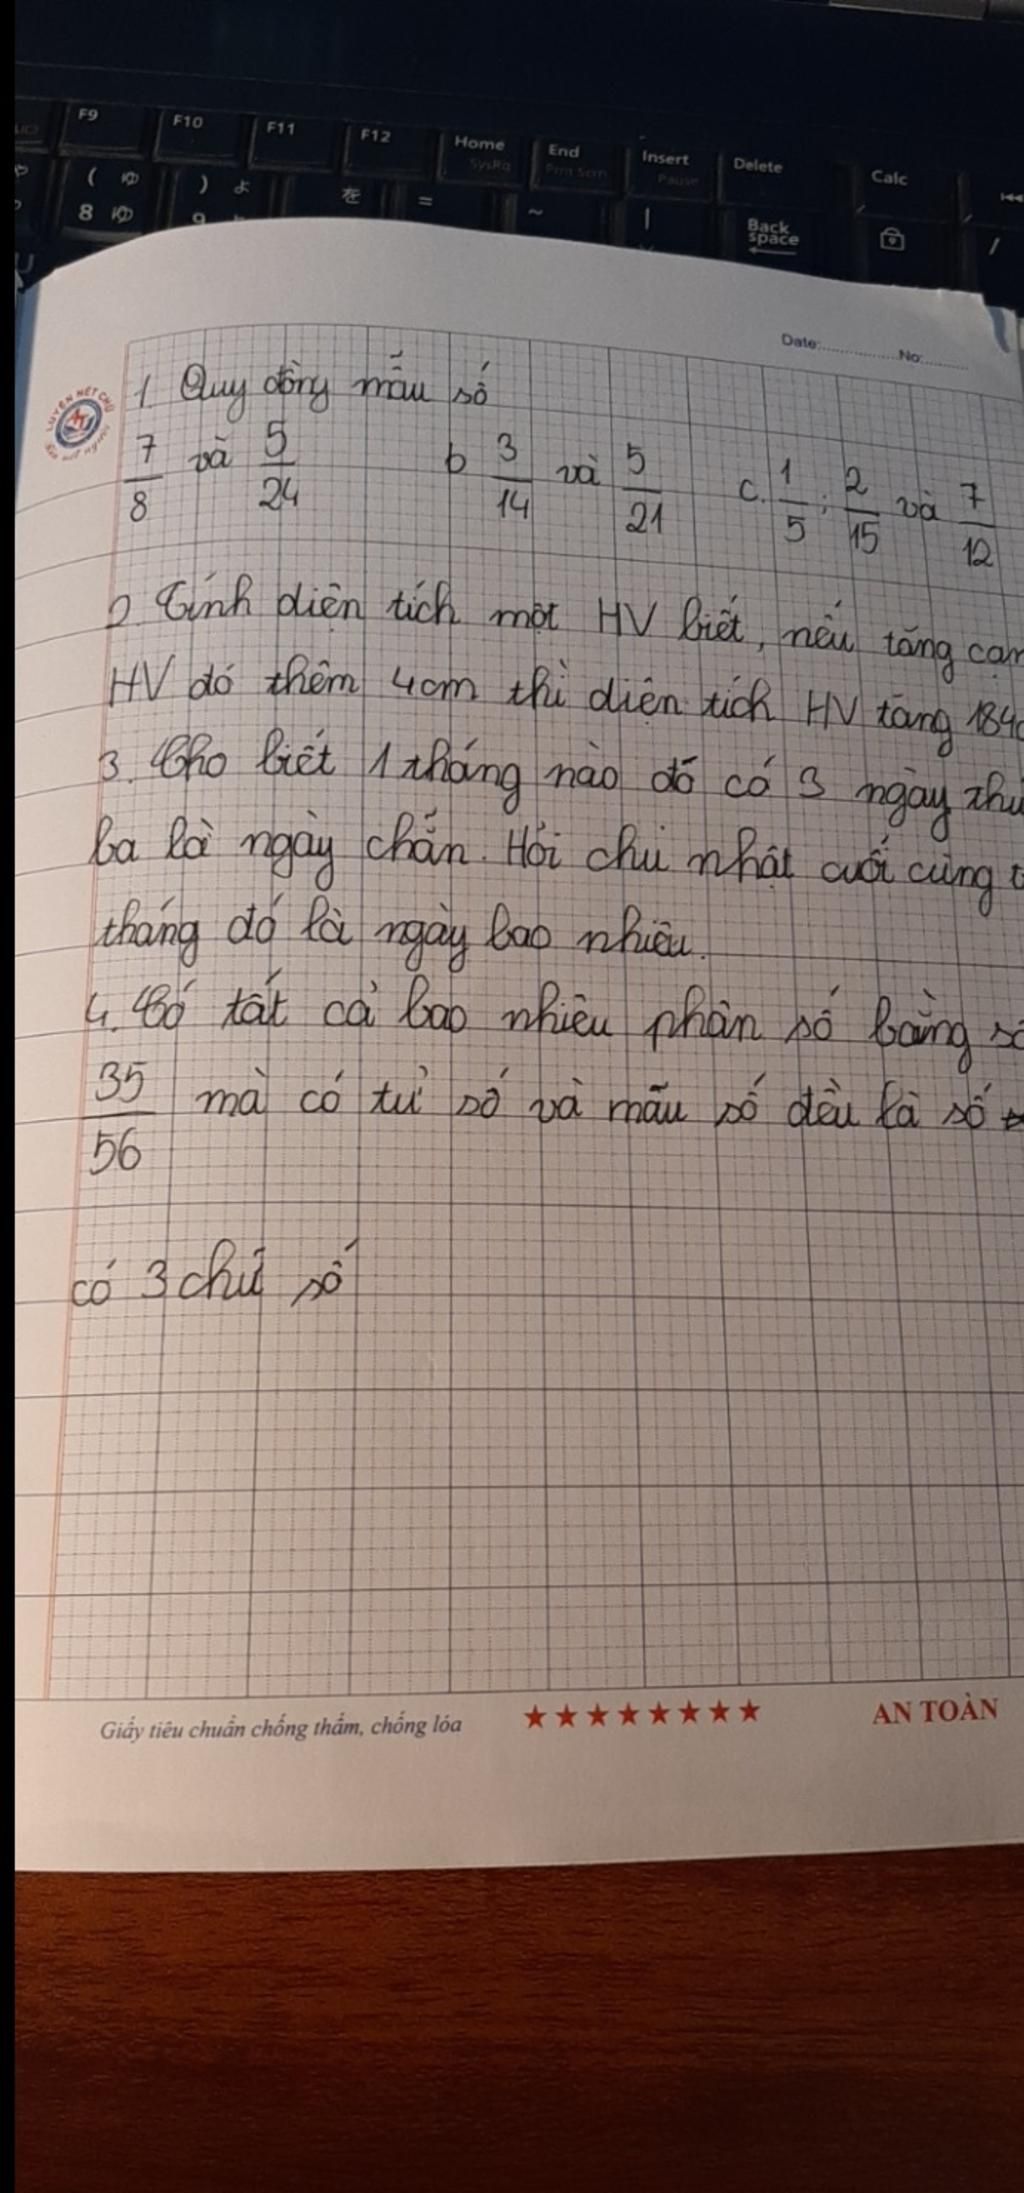 F9 F10 F11 F12 Home End Insert Delete Calc
SysRq Prtn Scrn Pause
( ゆ ) よ を = ~ | Back space /
8 ゆ 9
U
Date: No:
LUYỆN NÉT CHỮ
1. Quy đồng mẫu số
7/8 và 5/24 b 3/14 và 5/21 c. 1/5 ; 2/15 và 7/12
2. Tính diện tích một HV biết, nếu tăng
HV đó thêm 4cm thì diện tích HV tăng 184
3. Cho biết 1 tháng nào đó có 3 ngày
ba là ngày chẵn. Hỏi chủ nhật cuối cùng
tháng đó là ngày bao nhiêu.
4. Có tất cả bao nhiêu phân số bằng
35/56 mà có tử số và mẫu số đều là số
có 3 chữ số
Giấy tiêu chuẩn chống thấm, chống lóa ★★★★★★★★ AN TOÀN